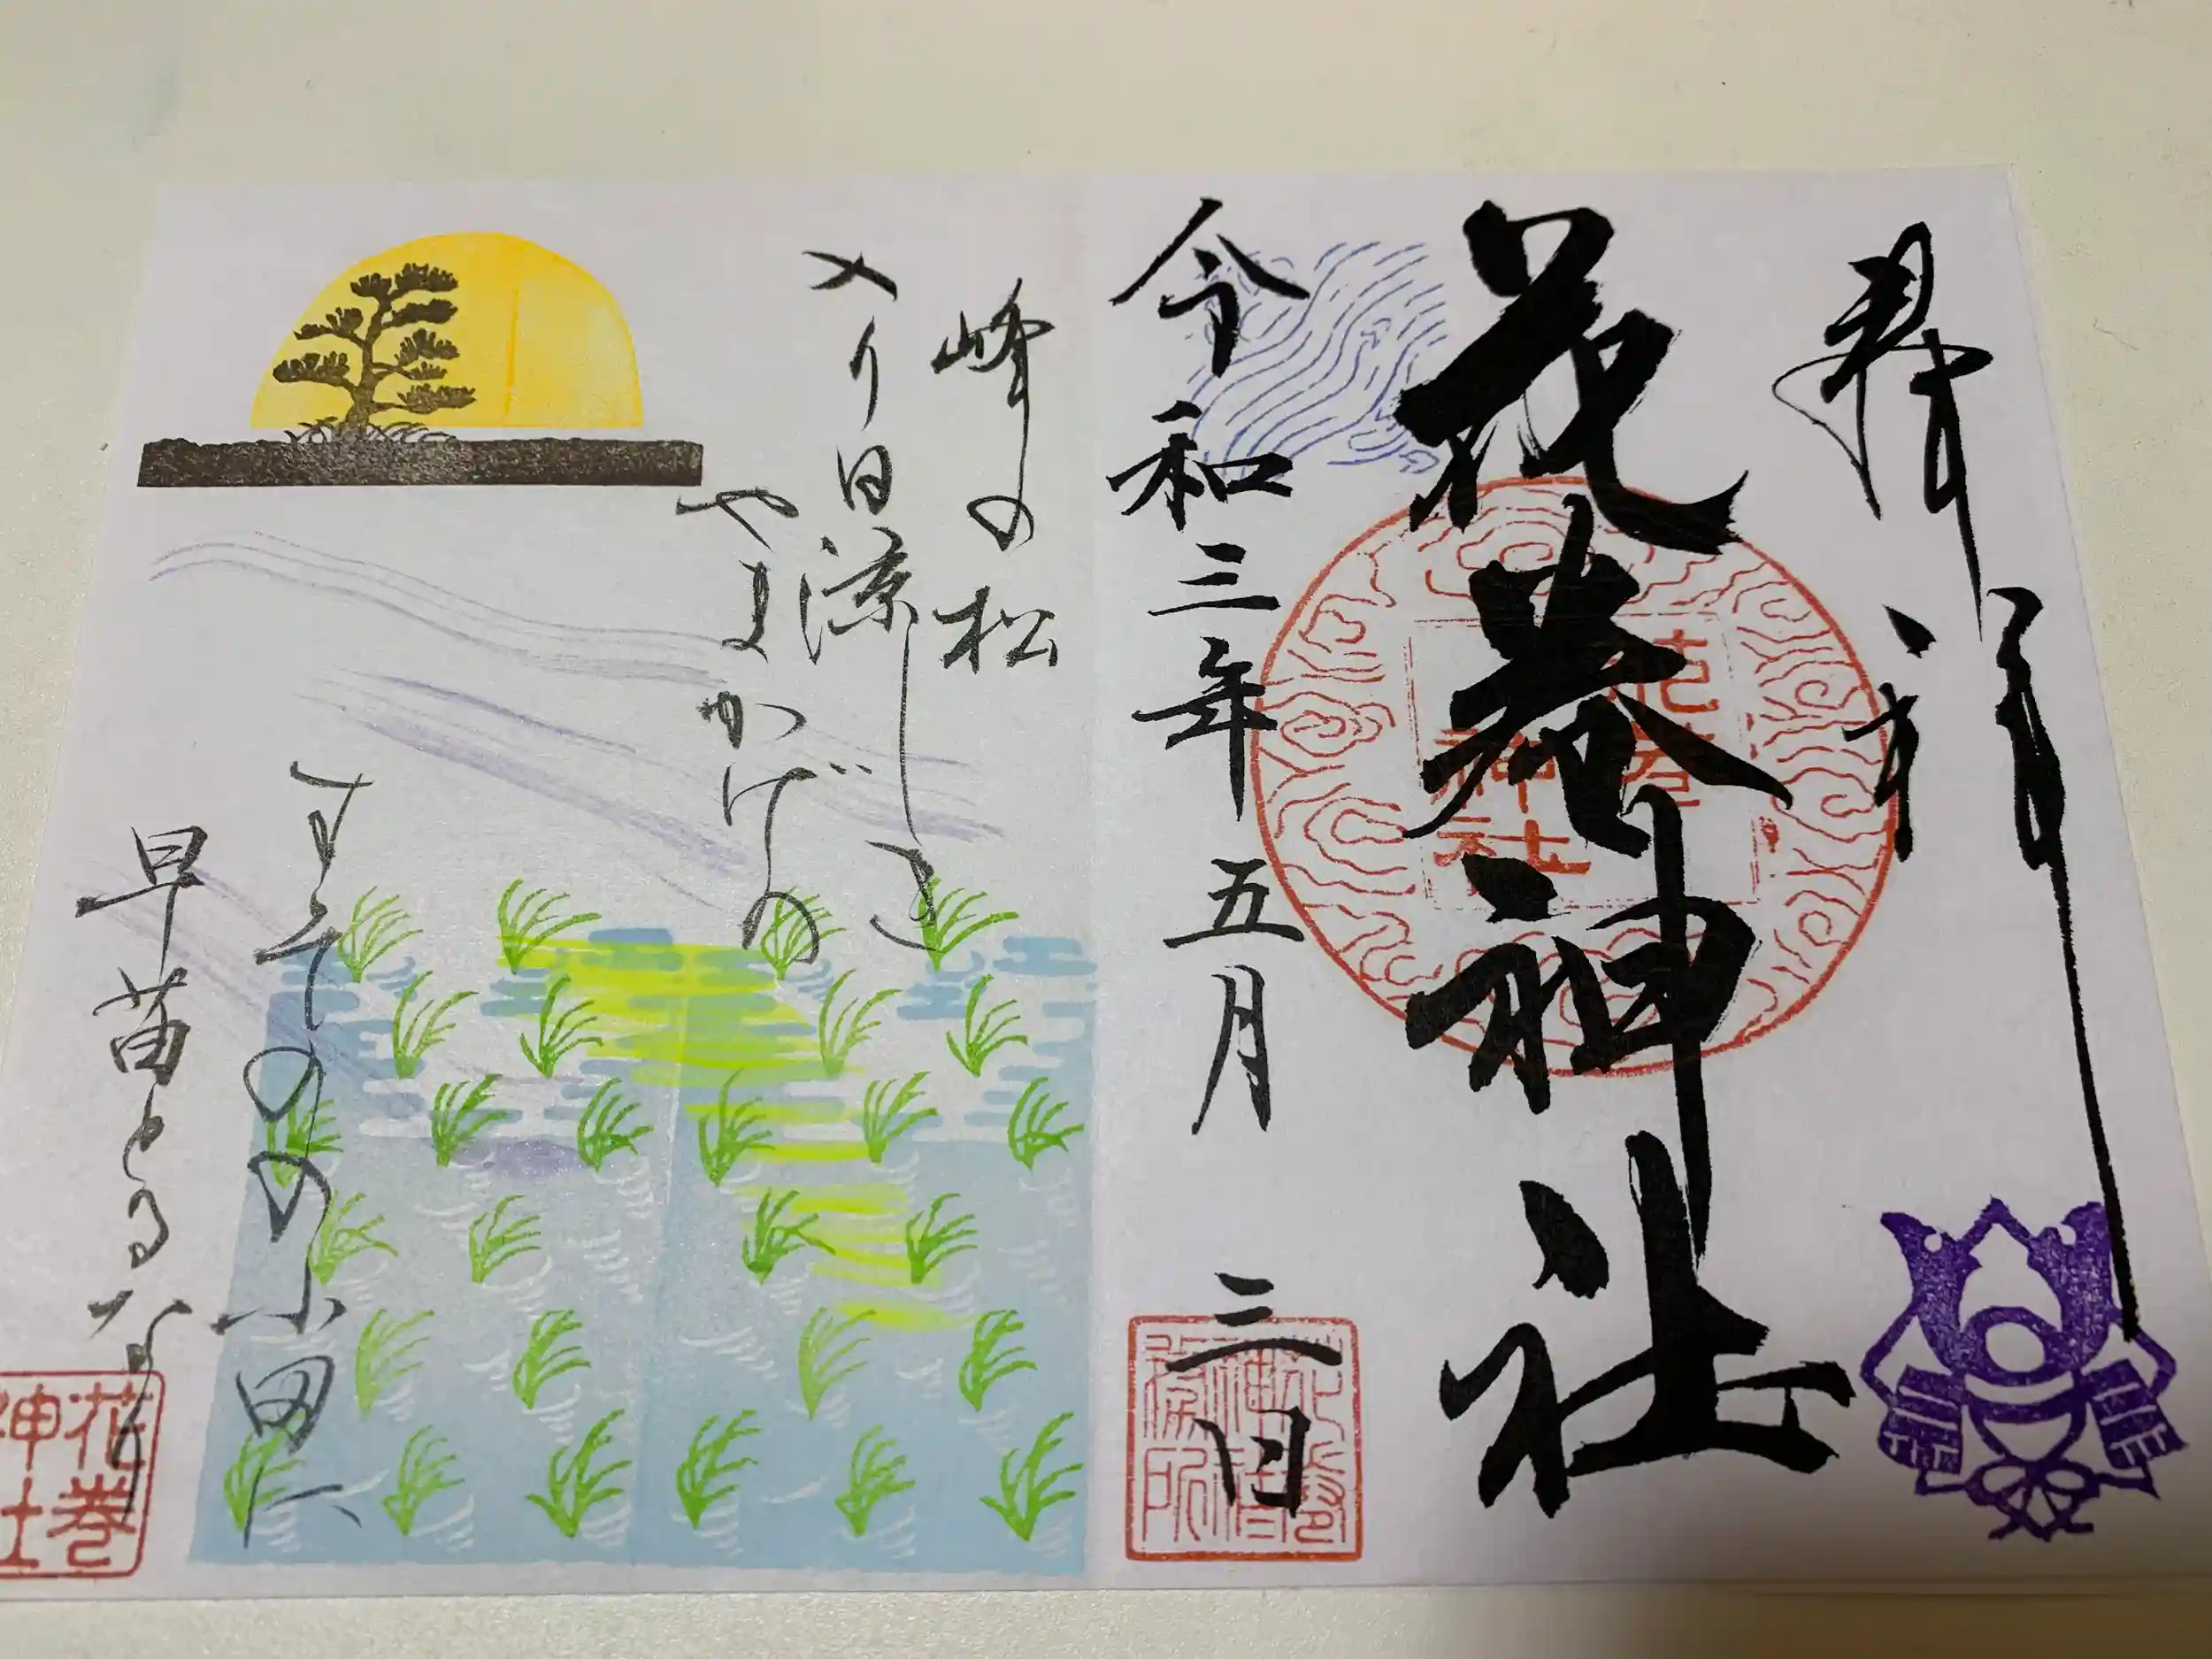 花巻神社
花巻
神社
令和三年五月三日
峰の松
入り日涼しき
やまかげの
すそのの小田に
早苗とるなり
花巻
神社